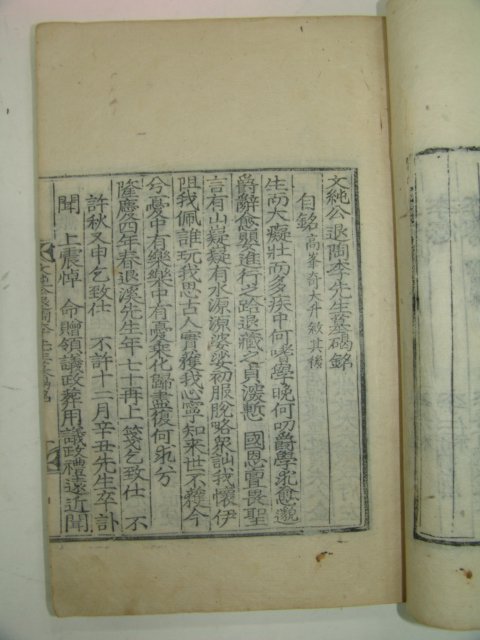 文純公退陶李先生墓碣銘
自銘 高峯奇大升敘其後
生而大癡壯而多疾中何嗜學晚何叨爵學求愈邈
爵辭愈嬰進行之跲退藏之貞深慙 國恩亶畏聖
言有山嶷嶷有水源源婆娑初服脫略衆訕我懷伊
阻我佩誰玩我思古人實獲我心寧知來世不獲今
兮憂中有樂樂中有憂乘化歸盡復何求兮
隆慶四年春退溪先生年七十再上 箋乞致仕 不
許秋又申乞致仕 不許十二月辛丑先生卒訃
聞 上震悼 命贈領議政葬用議政禮遠近聞